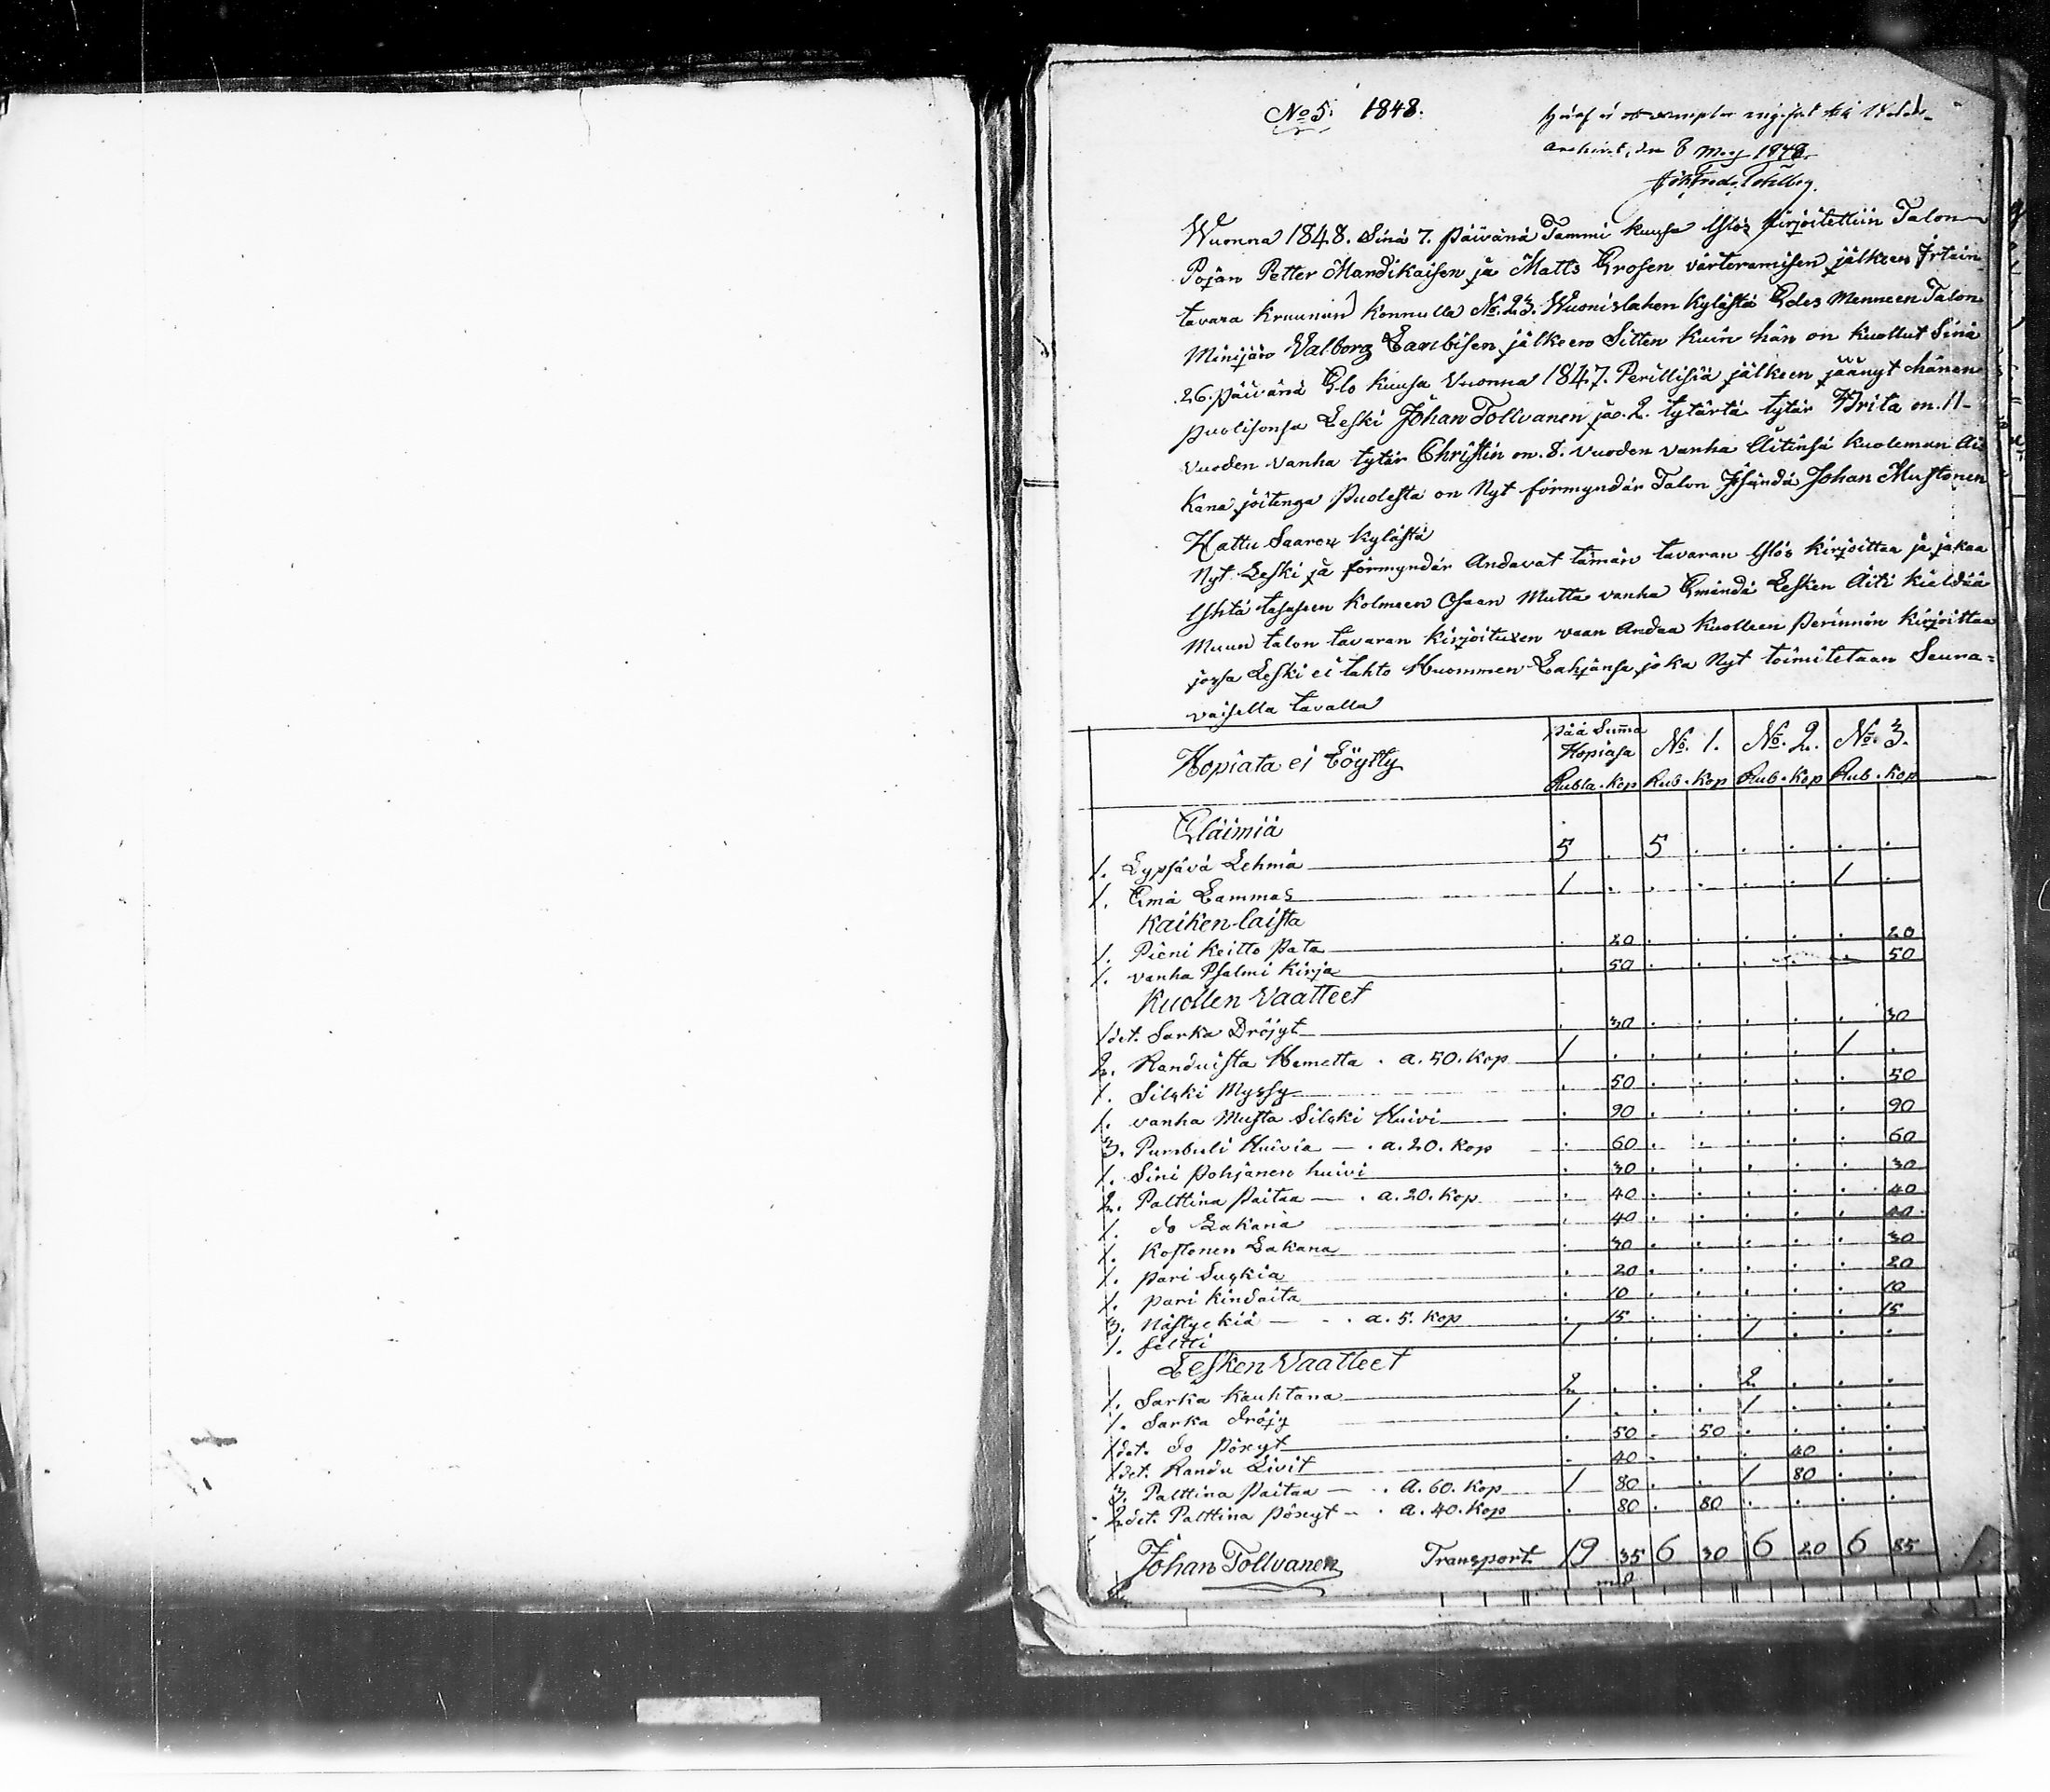 No 5. 1848.
archivet, den 8 Maij 1848.
Wuonna 1848. Sinä 7. päivänä Tammi kuusa Ylös kirjoitettiin Talon
Pojan Petter Mandikaisen ja Matts Erosen värteramisen jälkeen Irtain
tavara kruunun konnulla No. 23. Wuonislahen kylästä Edes Menneen Talon
Minijän Valborg Lambisen jälkeen Sitten kuin hän on kuollut Sinä
26. päivänä Elo kuusa Vuonna 1847. Perillisiä jälkeen jäänyt hänen
puolisonsa Leski Johan Tollvanen ja. 2. tytärtä tytär Brita on. 11-
vuoden vanha tytär Christin on. 8. vuoden vanha Äitinsä kuoleman Ai
kana joitenga puolesta on Nyt förmyndär Talon Isändä Johan Mustonen
Hattu Saaren kylästä
Nyt Leski ja förmyndär Andavat tämän tavaran Ylös kirjoittaa ja jakaa
Yhtä tasaseen kolmeen Osaan Mutta vanha Emändä Lesken Äiti kieldää
Muun talon tavaran kirjoituxen vaan Andaa kuolleen perinnön kirjoittaa
josa Leski ei tahto Huommen Lahjansa joka Nyt toimitetaan Seura=
vaisella tavalla
Hopiata ei Löytty pää Summa Hopiasa No. 1. No. 2. No. 3.
Rubla. kop Rub. kop Rub. kop Rub. kop
Eläimiä
1. Lypsävä Lehmä 5 . 5 . . . . .
1. Emä Lammas 1 . . . . . 1 .
Kaiken-laista
1. Pieni keitto pata . 20 . . . . . 20
1. vanha Psalmi kirja . 50 . . . . . 50
Kuollen Vaatteet
1det. Sarka Dröjyt . 30 . . . . . 30
2. Randuista Hametta . a. 50. kop 1 . . . . . 1 .
1. Silzki Myssy . 50 . . . . . 50
1. vanha Musta Silzki Huivi . 90 . . . . . 90
3. Pumbuli Huivia — . a. 20. kop . 60 . . . . . 60
1. Sini pohjanen huivi . 30 . . . . . 30
2. Palttina paitaa — . a. 20. kop . 40 . . . . . 40
1. do Lakana . 40 . . . . . 40
1. Kostonen Lakana . 30 . . . . . 30
1. pari Sugkia . 20 . . . . . 20
1. pari kindaita . 10 . . . . . 10
3. Nästyckiä — . a. 5. kop . 15 . . . . . 15
1. Seltti 1 . . . 1 . . .
Lesken Vaatteet
1. Sarka kauhtana 2 . . . 2 . . .
1. Sarka dröjy 1 . . . 1 . . .
1det. do pöxyt . 50 . 50 . . . .
1det. Randu Livit . 40 . . . 40 . .
3. Palttina paitaa — . a. 60. kop 1 80 . . 1 80 . .
2det. Palttina pöxyt — . a. 40. kop . 80 . 80 . . . .
Johan Tollvanen Transport 19 35 6 30 6 20 6 85